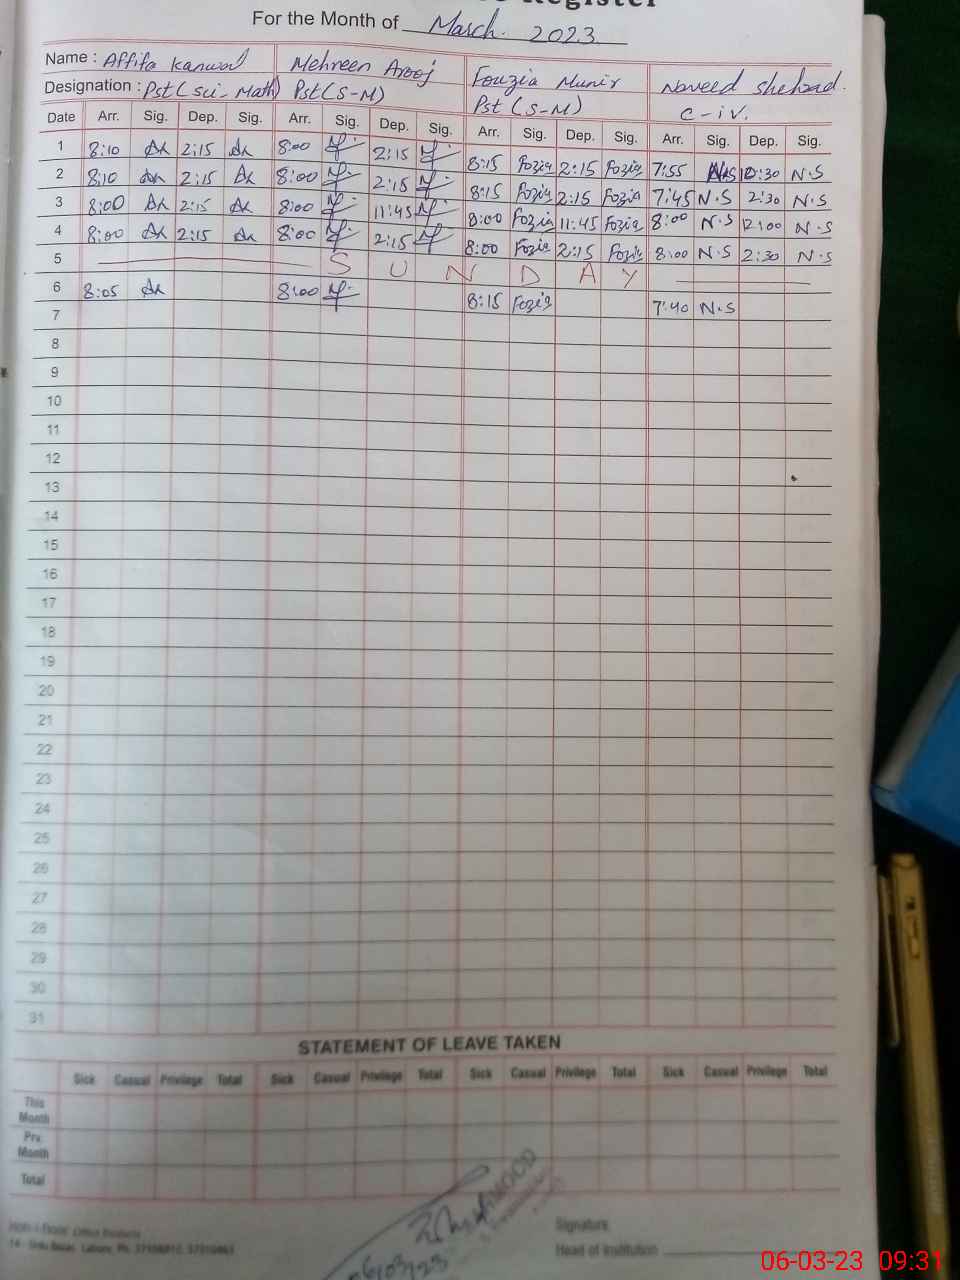 Register
For the Month of March. 2023
Name : Affifa Kanwal Mehreen Arooj Fouzia Munir Naveed Shehzad.
Designation : Pst (Sci-Math) Pst (S-M) Pst (S-M) C-iv.
Date Arr. Sig. Dep. Sig. Arr. Sig. Dep. Sig. Arr. Sig. Dep. Sig. Arr. Sig. Dep. Sig.
1 8:10 Ak 2:15 Ak 8:00 2:15 8:15 Fozia 2:15 Fozia 7:55 N.S N.S
2 8:10 Ak 2:15 Ak 8:00 2:15 8:15 Fozia 2:15 Fozia 7:45 N.S 2:30 N.S
3 8:00 Ak 2:15 Ak 8:00 11:45 8:00 Fozia 11:45 Fozia 8:00 N.S 12:00 N.S
4 8:00 Ak 2:15 Ak 8:00 2:15 8:00 Fozia 2:15 Fozia 8:00 N.S 2:30 N.S
5 S U N D A Y
6 8:05 Ak 8:00 8:15 Fozia 7:40 N.S
7
8
9
10
11
12
13
14
15
16
17
18
19
20
21
22
23
24
25
26
27
28
29
30
31
STATEMENT OF LEAVE TAKEN
Sick Casual Privilege Total Sick Casual Privilege Total Sick Casual Privilege Total Sick Casual Privilege Total
This Month
Prv. Month
Total
Signature
Head of Institution
06-03-23 09:31